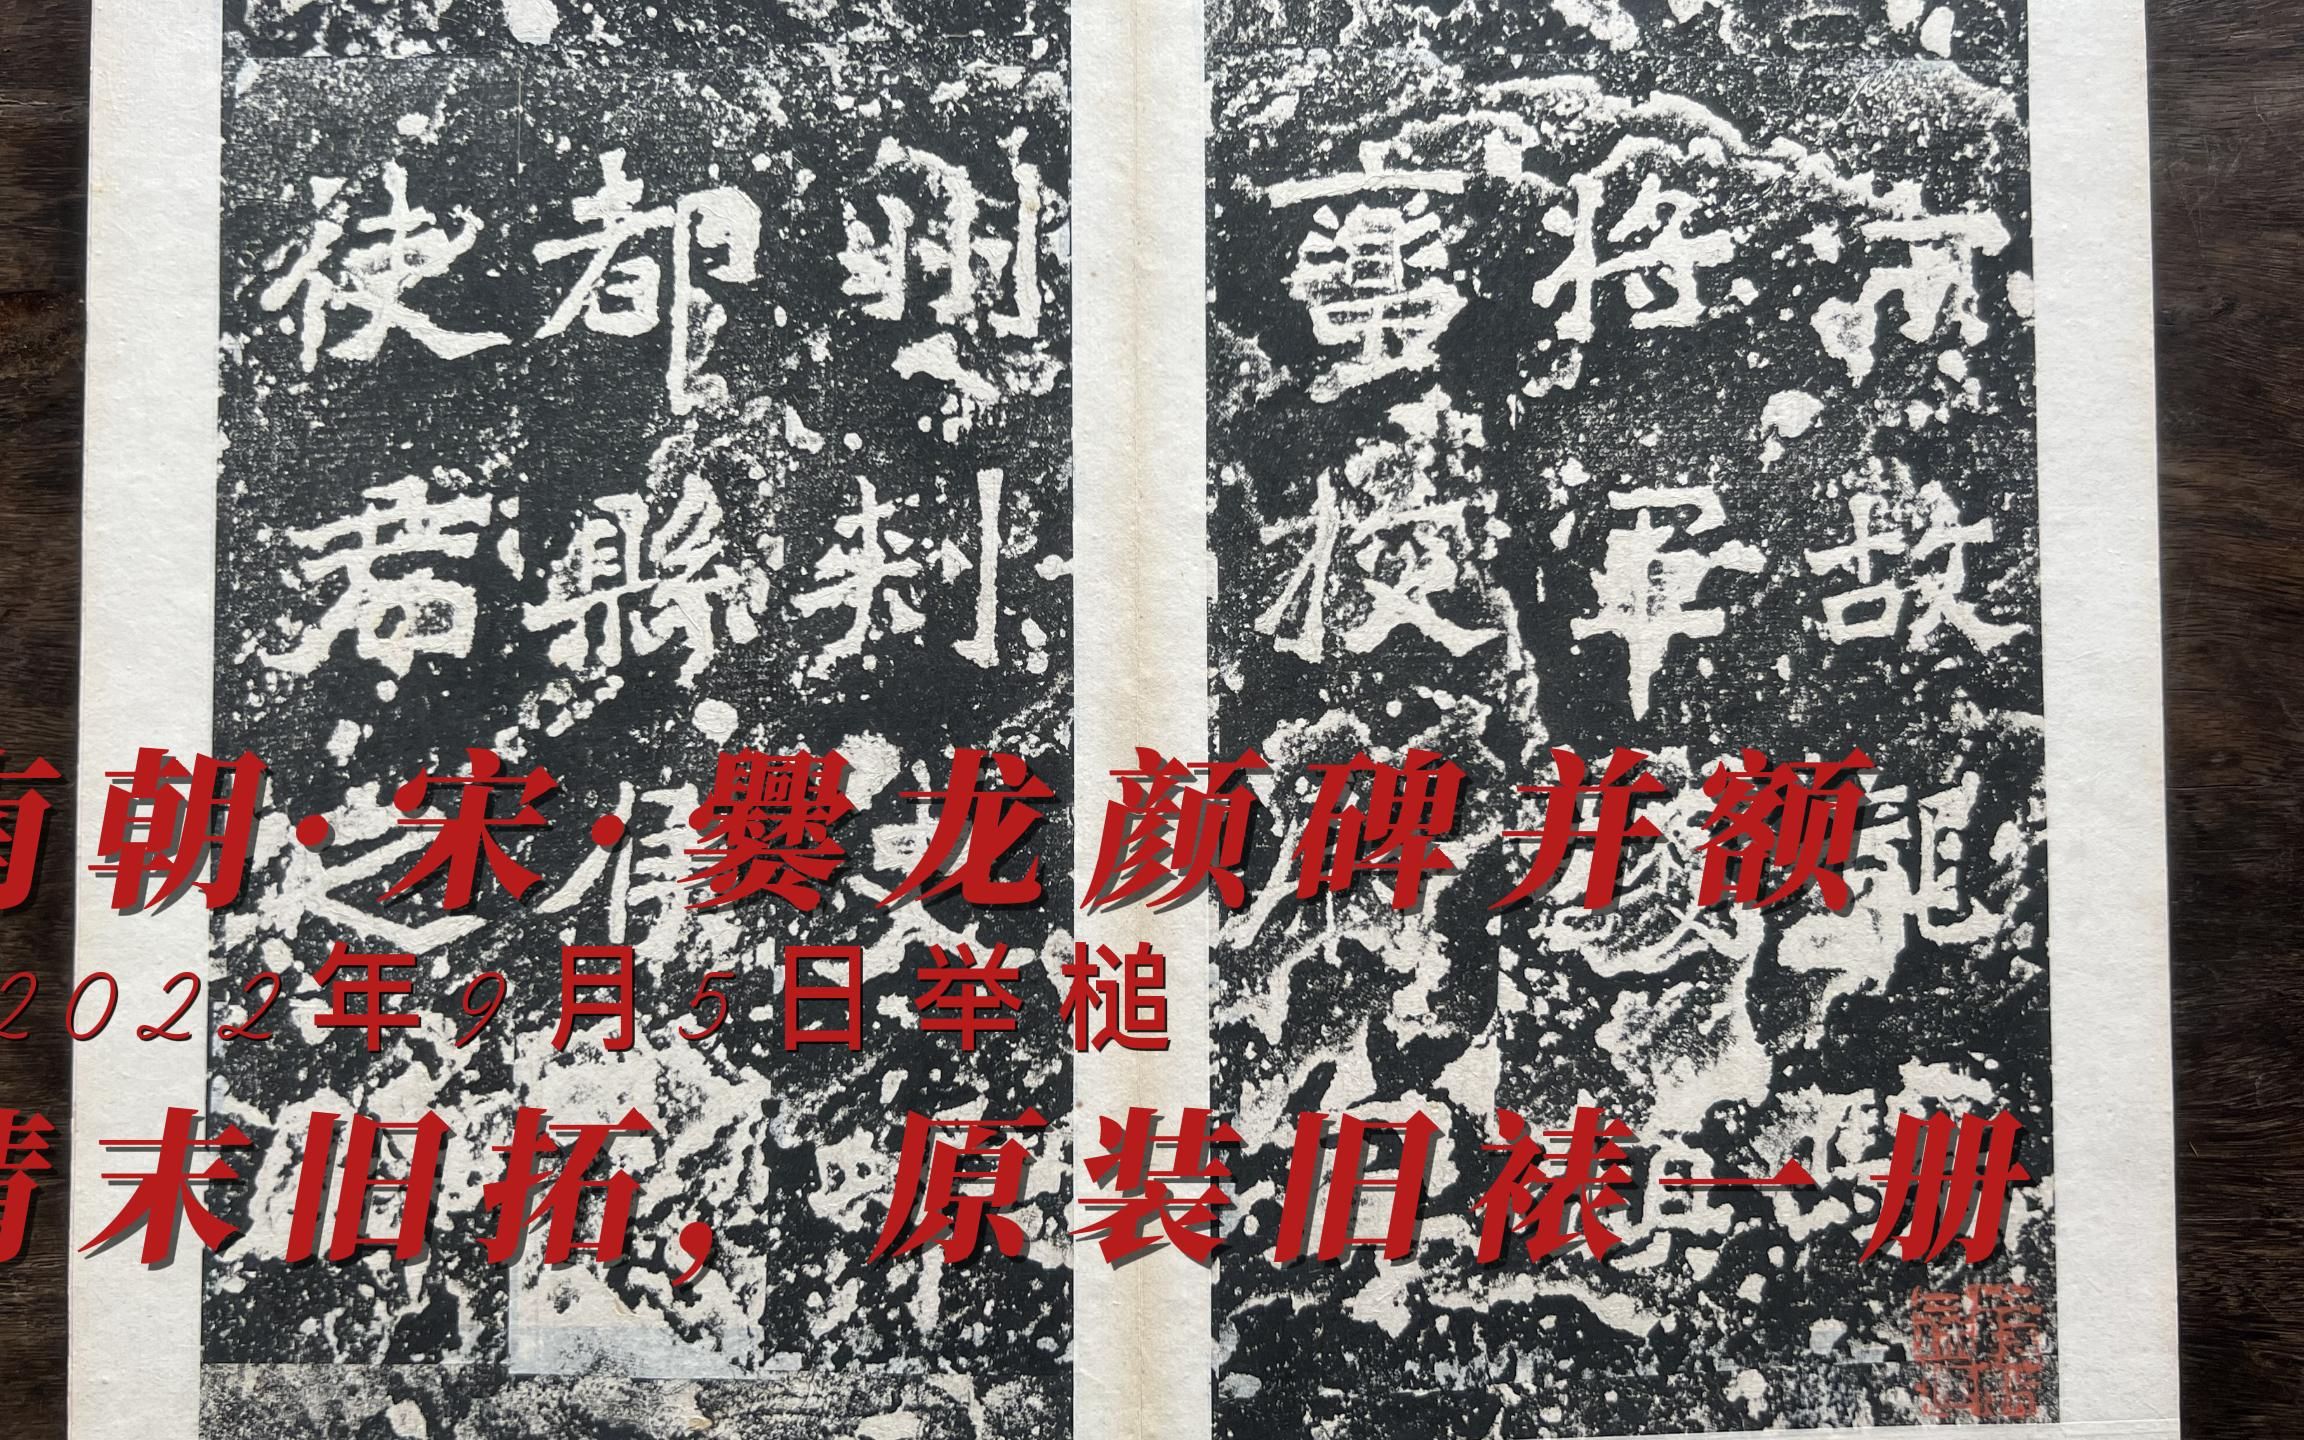 宋故龍
將軍護
蠻校尉
州刺史邛
都縣侯
使君之
南朝·宋·爨龙颜碑并额
2022年9月5日举槌
清末旧拓，原装旧裱一册